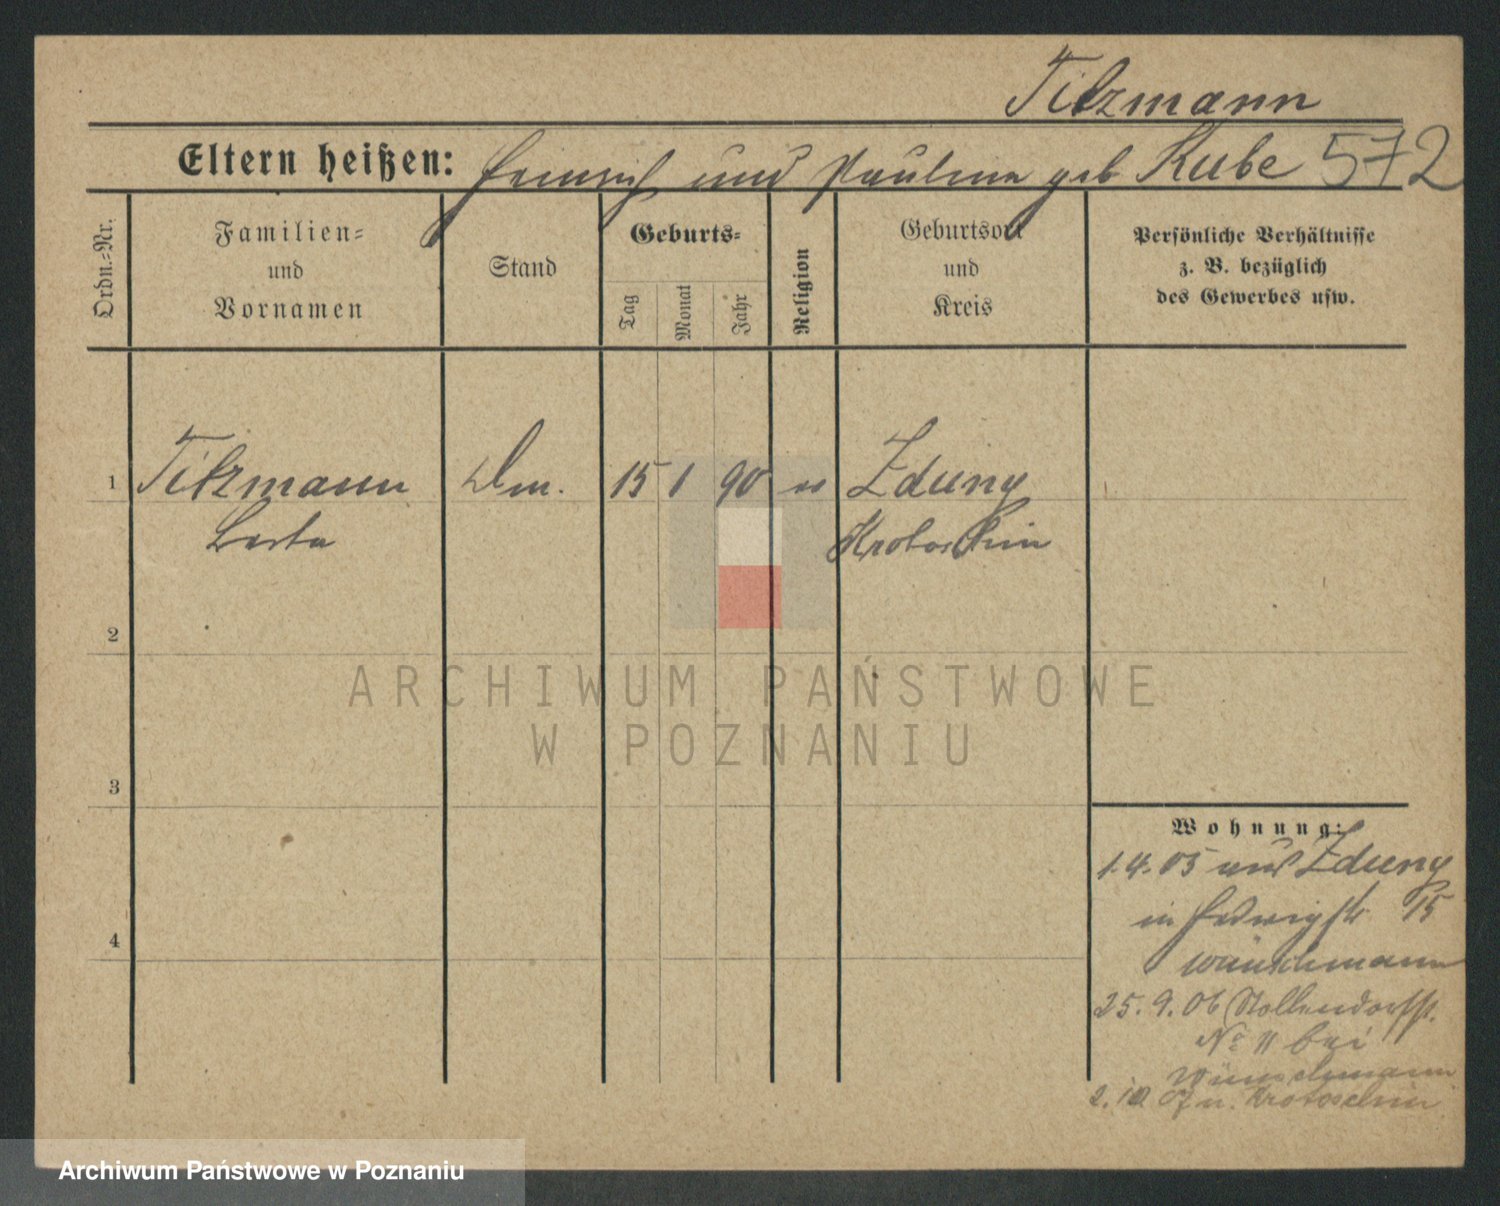 Titzmann
Eltern heißen: Heinrich und Pauline geb Kube 572
Ordn.-Nr.
Familien-
und
Vornamen
Stand
Geburts-
Tag
Monat
Jahr
Religion
Geburtsort
und
Kreis
Persönliche Verhältnisse
z. B. bezüglich
des Gewerbes usw.
1 Titzmann 15 1 90 Zduny
Berta Krotoschin
2
3
4
Wohnung:
1.4.05 aus Zduny
in Hedwigstr 15
Wünschmann
25.9.06 Nollendorfst.
No 11 bei
Wünschmann
2.10 07 n. Krotoschin
ARCHIWUM PAŃSTWOWE
W POZNANIU
Archiwum Państwowe w Poznaniu